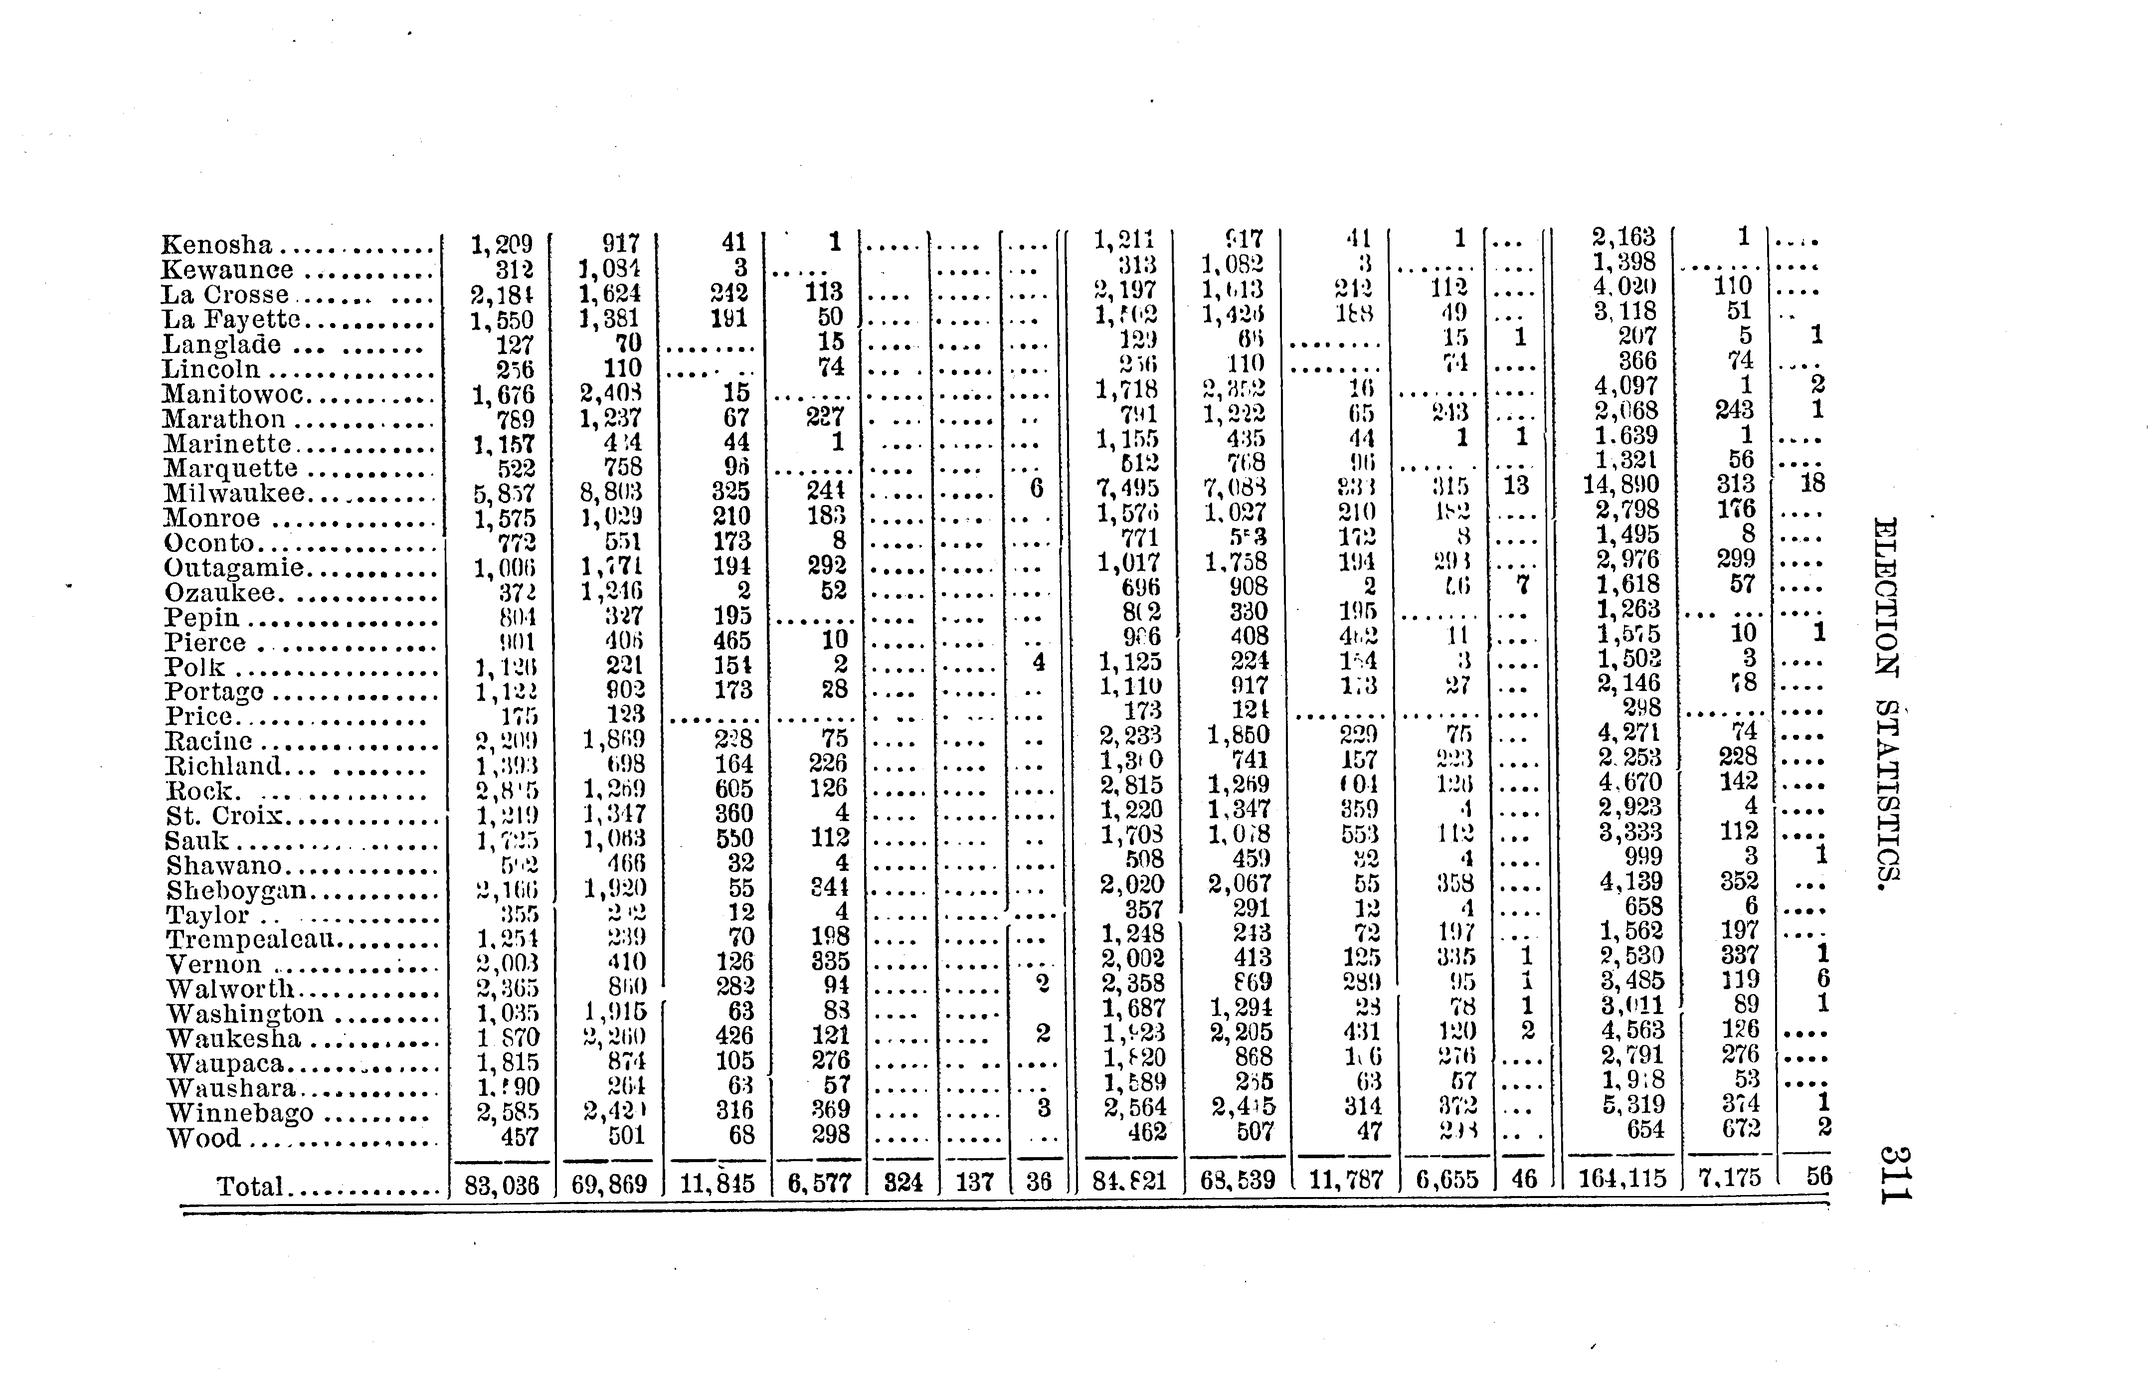 Kenosha 1,209 917 41 1 .... .... .... 1,211 917 41 1 ... 2,163 1 ....
Kewaunee 312 1,084 3 .... .... ... 313 1,082 3 .... .... 1,398 .... ....
La Crosse 2,184 1,624 242 113 .... .... .... 2,197 1,613 242 112 .... 4,020 110 ....
La Fayette 1,550 1,381 191 50 .... .... ... 1,426 188 49 ... 3,118 51 ..
Langlade 127 70 .... 15 .... .... .... 129 15 1 207 5 1
Lincoln 256 110 .... 74 .... .... .... 256 110 .... 74 .... 366 74 ....
Manitowoc 1,676 2,408 15 .... .... .... .... 1,718 2,352 16 .... .... 4,097 1 2
Marathon 789 1,237 67 227 .... .... .. 791 1,222 65 243 .... 2,068 243 1
Marinette 1,157 44 1 .... .... ... 1,155 435 44 1 1 1.639 1 ....
Marquette 522 758 96 .... .... .... ... 512 768 96 .... .... 1,321 56 ....
Milwaukee 5,857 8,803 325 244 .... .... 6 7,495 7,088 315 13 14,890 313 18
Monroe 1,575 1,029 210 183 .... .... .... 1,576 1,027 210 182 .... 2,798 176 ....
Oconto 772 551 173 8 .... .... .... 771 172 8 .... 1,495 8 ....
Outagamie 1,006 1,771 194 292 .... .... ... 1,017 1,758 194 293 .... 2,976 299 ....
Ozaukee 372 1,246 2 52 .... .... ... 696 908 2 7 1,618 57 ....
Pepin 804 327 195 .... .... .... .. 802 330 195 .... .... 1,263 .... ....
Pierce 901 406 465 10 .... .... .. 906 408 462 11 .... 1,575 10 1
Polk 1,126 221 154 2 .... .... 4 1,125 224 154 3 .... 1,503 3 ....
Portage 1,122 902 173 28 .... .... .. 1,110 917 173 27 ... 2,146 ....
Price 175 123 .... .... .... .... ... 173 124 .... .... .... 298 .... ....
Racine 2,209 1,869 228 75 .... .... .. 2,233 1,850 229 75 ... 4,271 74 ....
Richland 1,393 698 164 226 .... .... ... 741 157 223 .... 2.253 228 ....
Rock 2,815 1,269 605 126 .... .... ... 2,815 1,269 604 126 .... 4,670 142 ....
St. Croix 1,219 1,347 360 4 .... .... ... 1,220 1,347 359 4 .... 2,923 4 ....
Sauk 1,725 1,063 550 112 .... .... .. 1,703 1,078 553 112 ... 3,333 112 ....
Shawano 466 32 4 .... .... ... 508 459 32 4 .... 999 3 1
Sheboygan 2,166 1,920 55 344 .... .... ... 2,020 2,067 55 358 .... 4,139 352 ...
Taylor 355 292 12 4 .... .... .... 357 291 12 4 .... 658 6 ....
Trempealeau 1,254 239 70 198 .... .... ... 1,248 243 72 197 ... 1,562 197 ....
Vernon 2,003 410 126 335 .... .... .... 2,002 413 125 335 1 2,530 337 1
Walworth 2,365 860 282 94 .... .... 2 2,358 869 289 95 1 3,485 119 6
Washington 1,035 1,915 63 88 .... .... 1,687 1,294 28 78 1 3,011 89 1
Waukesha 1 870 2,260 426 121 .... .... 2 1,923 2,205 431 120 2 4,563 126 ....
Waupaca 1,815 874 105 276 .... .... .... 1,820 868 106 276 .... 2,791 276 ....
Waushara 264 63 57 .... .... ... 1,589 265 63 57 .... 53 ....
Winnebago 2,585 316 369 .... .... 3 2,564 2,415 314 372 ... 5,319 374 1
Wood 457 501 68 298 .... .... ... 462 507 47 298 .... 654 672 2
Total 83,036 69,869 11,845 6,577 324 137 36 84,821 68,539 11,787 6,655 46 164,115 7,175 56
ELECTION STATISTICS.
311